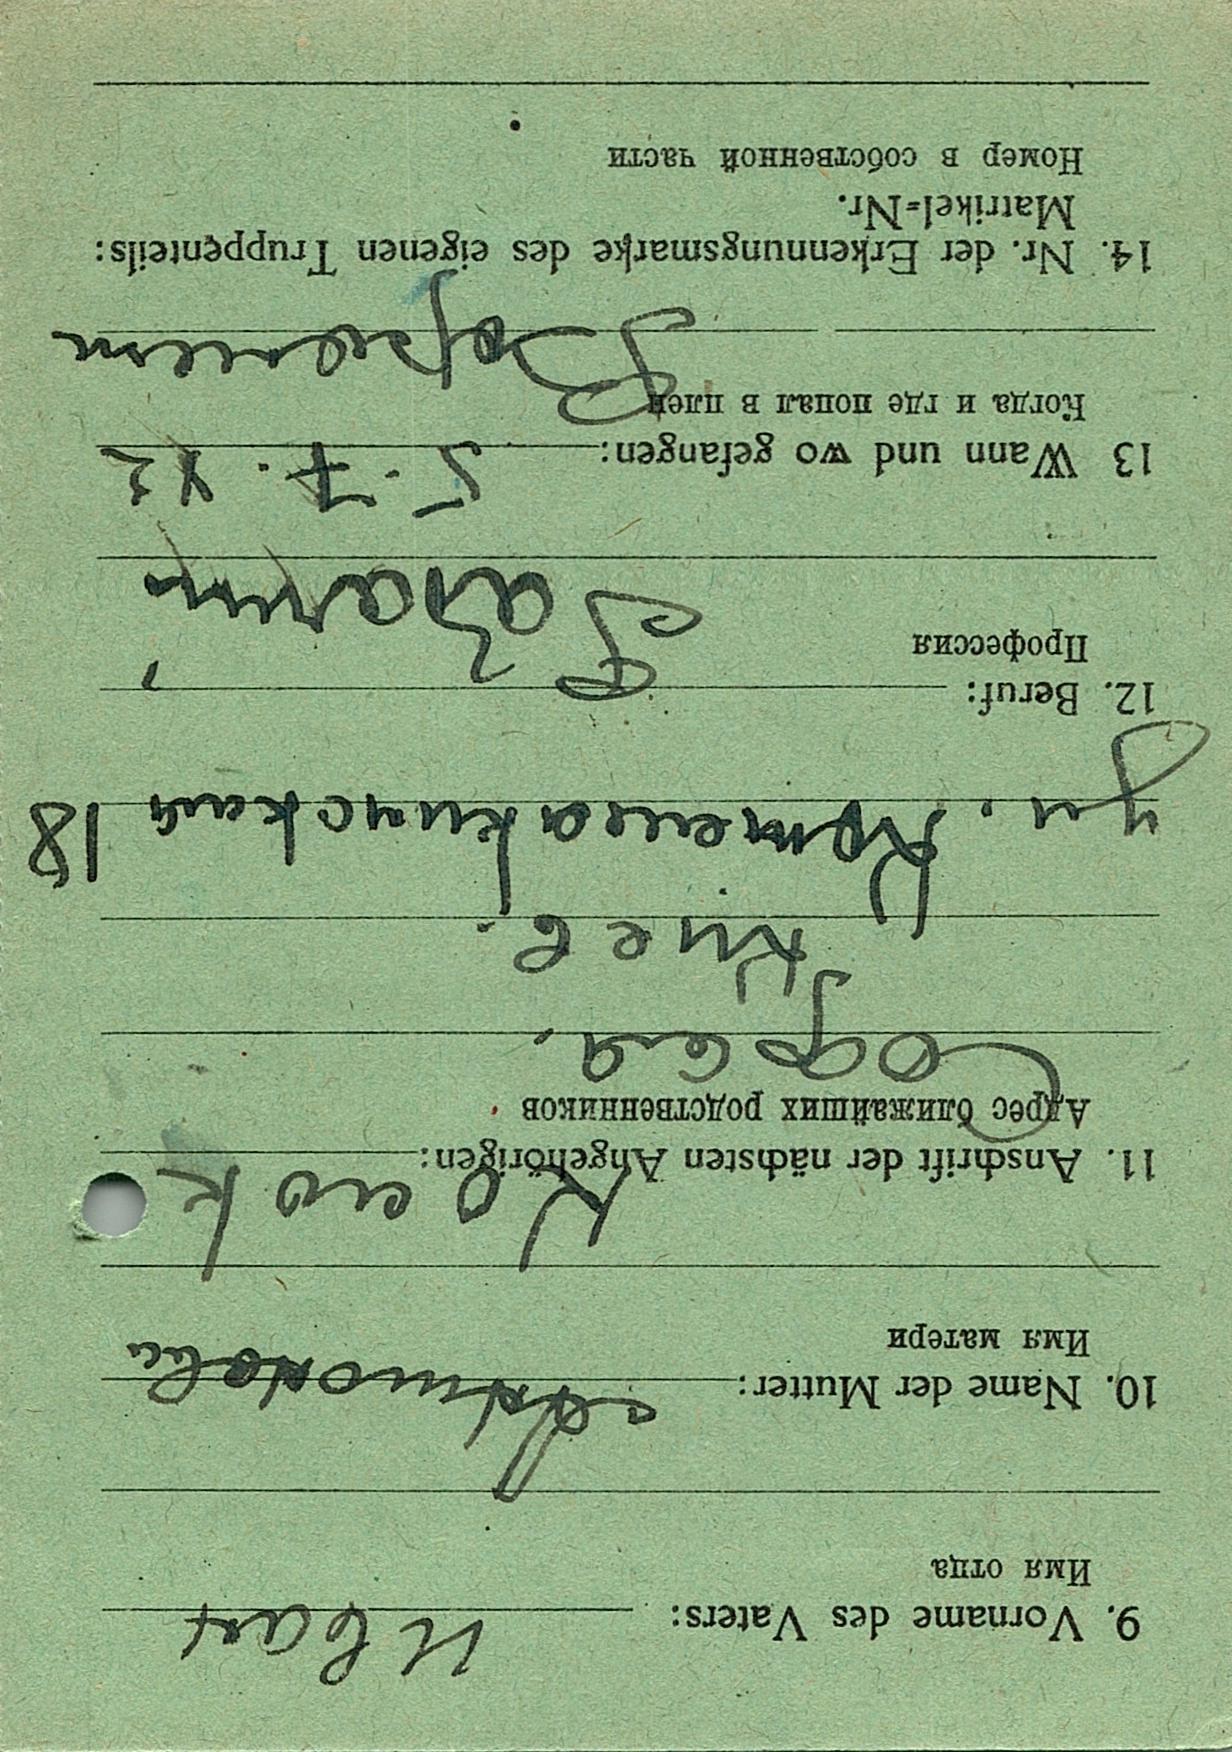 9. Vorname des Vaters: Иван
Имя отца
10. Name der Mutter:
Имя матери
11. Anschrift der nächsten Angehörigen:
Адрес ближайших родственников
София,
Киев.
ул. 18
12. Beruf:
Профессия
13 Wann und wo gefangen: 5.7.42
Когда и где попал в плен
14. Nr. der Erkennungsmarke des eigenen Truppenteils:
Matrikel=Nr.
Номер в собственной части